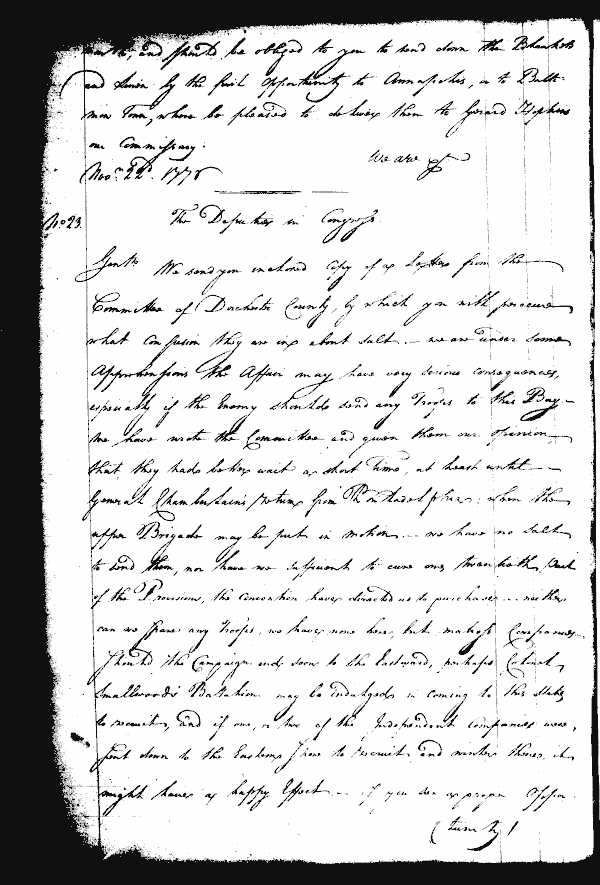 and should be obliged to you to send down the Blankets
and Linen by the first Opportunity to Annapolis, or to Balti-
more Town, where be pleased to deliver them to Gerard Hopkins
our Commissary.
We are &c
Nov.r 22.d 1776
No 23.
The Deputies in Congress.
Gent.n We send you inclosed Copy of a Letter from the
Committee of Dorchester County, by which you will perceive
what confusion they are in about salt — we are under some
Apprehensions the Affair may have very serious consequences,
especially if the Enemy should send any Troops to this Bay —
We have wrote the Committee and given them our opinion
that they had better wait a short Time, at least until
General Chamberlain's Return from Philadelphia, when the
upper Brigade may be put in motion — we have no Salt
to send them, nor have we sufficient to cure one twentieth Part
of the Provisions, the Convention have directed us to purchase — neither
can we spare any Troops, we have none here, but matross Companies.
Should the Campaign end soon to the Eastward, perhaps Colonel
Smallwood's Battalion may be indulged in coming to this State
to recruit, and if one, or two of the Independent companies were
sent down to the Eastern Shore to recruit and winter there, it
might have a happy Effect — if you see a proper Oppor-
(turn by)